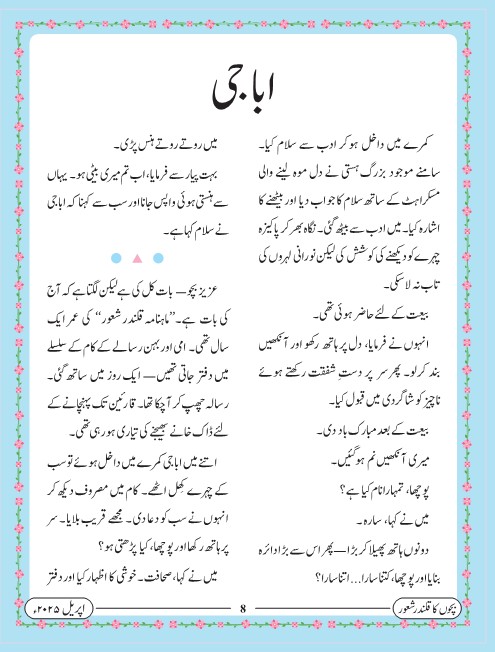 ابا جی
کمرے میں داخل ہو کر ادب سے سلام کیا۔
سامنے موجود بزرگ ہستی نے دل موہ لینے والی
مسکراہٹ کے ساتھ سلام کا جواب دیا اور بیٹھنے کا
اشارہ کیا۔ میں ادب سے بیٹھ گئی۔ نگاہ بھر کر پاکیزہ
چہرے کو دیکھنے کی کوشش کی لیکن نورانی لہروں کی
تاب نہ لا سکی۔
بیعت کے لئے حاضر ہوئی تھی۔
انہوں نے فرمایا، دل پر ہاتھ رکھو اور آنکھیں
بند کر لو۔ پھر سر پر دستِ شفقت رکھتے ہوئے
ناچیز کو شاگردی میں قبول کیا۔
بیعت کے بعد مبارک باد دی۔
میری آنکھیں نم ہو گئیں۔
پوچھا، تمہارا نام کیا ہے؟
میں نے کہا، سارہ۔
دونوں ہاتھ پھیلا کر بڑا — پھر اس سے بڑا دائرہ
بنایا اور پوچھا، کتنا سارا... اتنا سارا؟
میں روتے روتے ہنس پڑی۔
بہت پیار سے فرمایا، اب تم میری بیٹی ہو۔ یہاں
سے ہنستی ہوئی واپس جانا اور سب سے کہنا کہ ابا جی
نے سلام کہا ہے۔
عزیز بچو — بات کل کی ہے لیکن لگتا ہے کہ آج
کی بات ہے۔ ”ماہنامہ قلندر شعور“ کی عمر ایک
سال تھی۔ امی اور بہن رسالے کے کام کے سلسلے
میں دفتر جاتی تھیں — ایک روز میں ساتھ گئی۔
رسالہ چھپ کر آ چکا تھا۔ قارئین تک پہنچانے کے
لئے ڈاک خانے بھیجنے کی تیاری ہو رہی تھی۔
اتنے میں ابا جی کمرے میں داخل ہوئے تو سب
کے چہرے کِھل اٹھے۔ کام میں مصروف دیکھ کر
انہوں نے سب کو دعا دی۔ مجھے قریب بلایا۔ سر
پر ہاتھ رکھا اور پوچھا، کیا پڑھتی ہو؟
میں نے کہا، صحافت۔ خوشی کا اظہار کیا اور دفتر
بچوں کا قلندر شعور
8
اپریل ۲۰۲۵ء